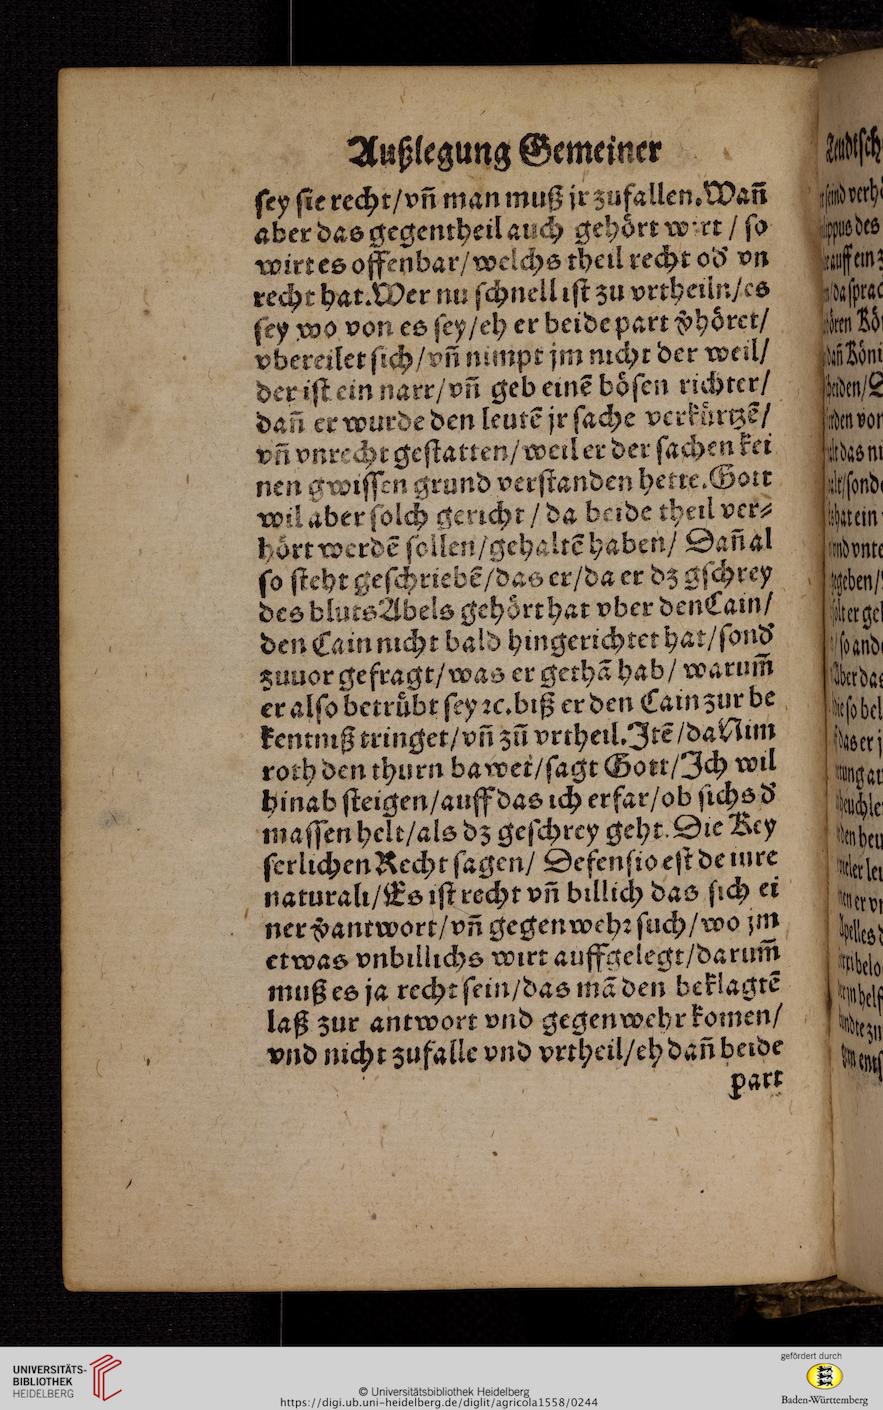 Außlegung Gemeiner
sey sie recht/vñ man muß jr zufallen.Wañ
aber das gegentheil auch gehoͤrt wirt / so
wirt es offenbar/welchs theil recht od' vn
recht hat.Wer nu schnell ist zu vrtheiln/es
sey wo von es sey/eh er beide part v̄hoͤret/
vbereilet sich/vñ nimpt jm nicht der weil/
der ist ein narr/vñ geb einẽ boͤsen richter/
dañ er wurde den leutẽ jr sache verkuͤrtzẽ/
vñ vnrecht gestatten/weil er der sachen kei
nen gwissen grund verstanden hette.Gott
wil aber solch gericht / da beide theil ver⸗
hoͤrt werdẽ sollen/gehaltẽ haben/ Dañ al
so steht geschriebẽ/das er/da er dz gschrey
des bluts Abels gehoͤrt hat vber den Cain/
den Cain nicht bald hingerichtet hat/sond'
zuuor gefragt/was er gethã hab/ warum̃
er also betruͤbt sey ⁊c.biß er den Cain zur be
kentniß tringet/vñ zũ vrtheil.Jtẽ/da Nim
roth den thurn bawet/sagt Gott/Jch wil
hinab steigen/auff das ich erfar/ob sichs d'
massen helt/als dz geschrey geht.Die Key
serlichen Recht sagen/ Defensio est de iure
naturali/Es ist recht vñ billich das sich ei
ner v̄antwort/vñ gegenwehr such/wo jm
etwas vnbillichs wirt auffgelegt/darum̃
muß es ja recht sein/das mã den beklagtẽ
laß zur antwort vnd gegenwehr komen/
vnd nicht zufalle vnd vrtheil/eh dañ beide
part
UNIVERSITÄTS-
BIBLIOTHEK
HEIDELBERG
© Universitätsbibliothek Heidelberg
https://digi.ub.uni-heidelberg.de/diglit/agricola1558/0244
gefördert durch
Baden-Württemberg